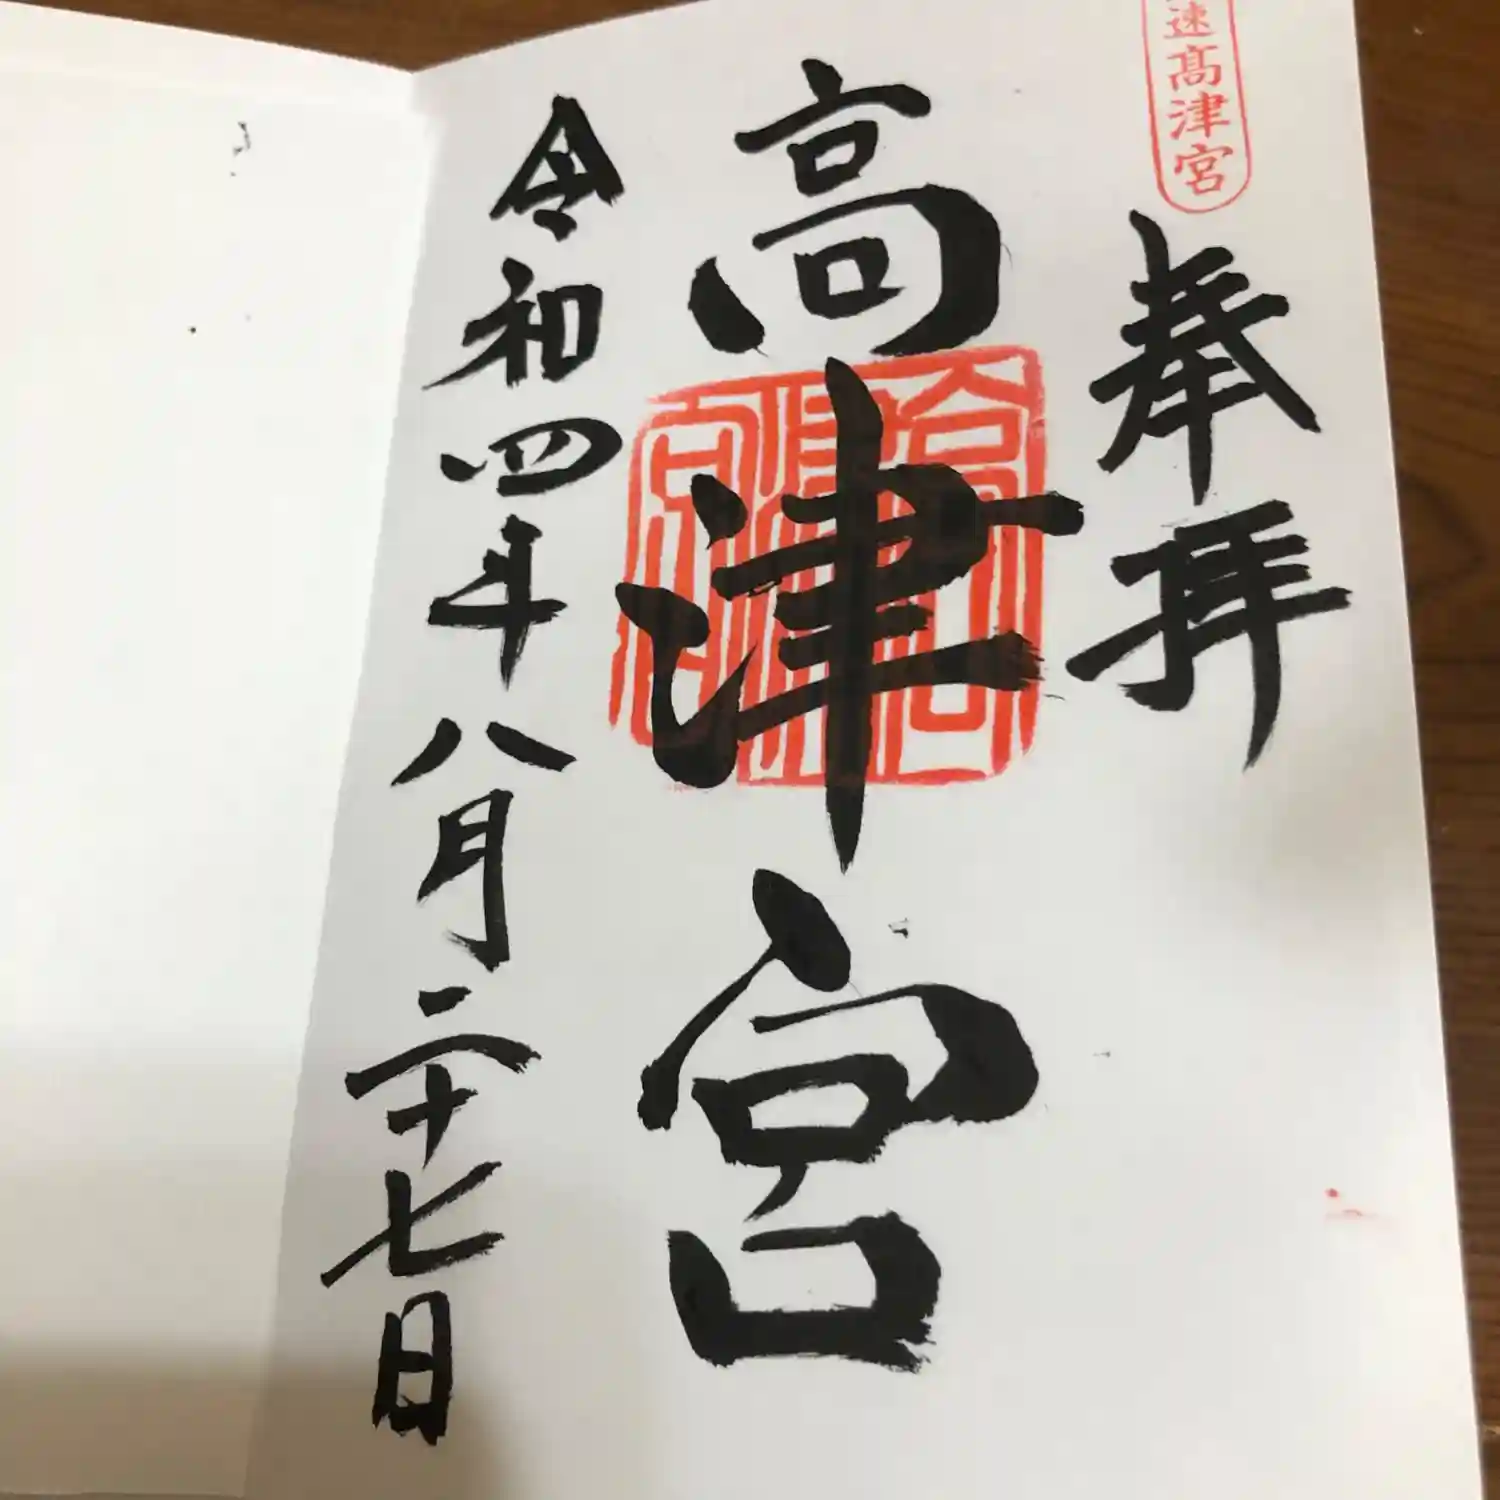 速高津宮
奉拝
高津宮
令和四年八月二十七日